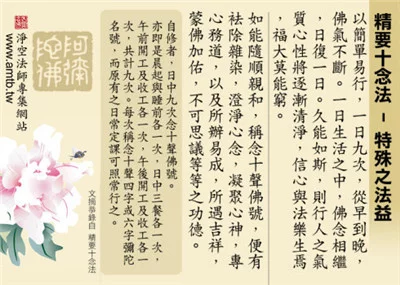 精要十念法 – 特殊之法益
以簡單易行，一日九次，從早到晚，
佛氣不斷。一日生活之中，佛念相繼
，日復一日。久能如斯，則行人之氣
質心性將逐漸清淨，信心與法樂生焉
，福大莫能窮。
如能隨順親和，稱念十聲佛號，便有
袪除雜染，澄淨心念，凝聚心神，專
心務道，以及所辦易成，所遇吉祥，
蒙佛加佑，不可思議等等之功德。
自修者，日中九次念十聲佛號。
亦即是晨起與睡前各一次，日中三餐各一次，
午前開工及收工各一次，午後開工及收工各一
次，共計九次。每次稱念十聲四字或六字彌陀
名號，而原有之日常定課可照常行之。
文摘恭錄自 精要十念法
阿彌陀佛
淨空法師專集網站
www.amtb.tw